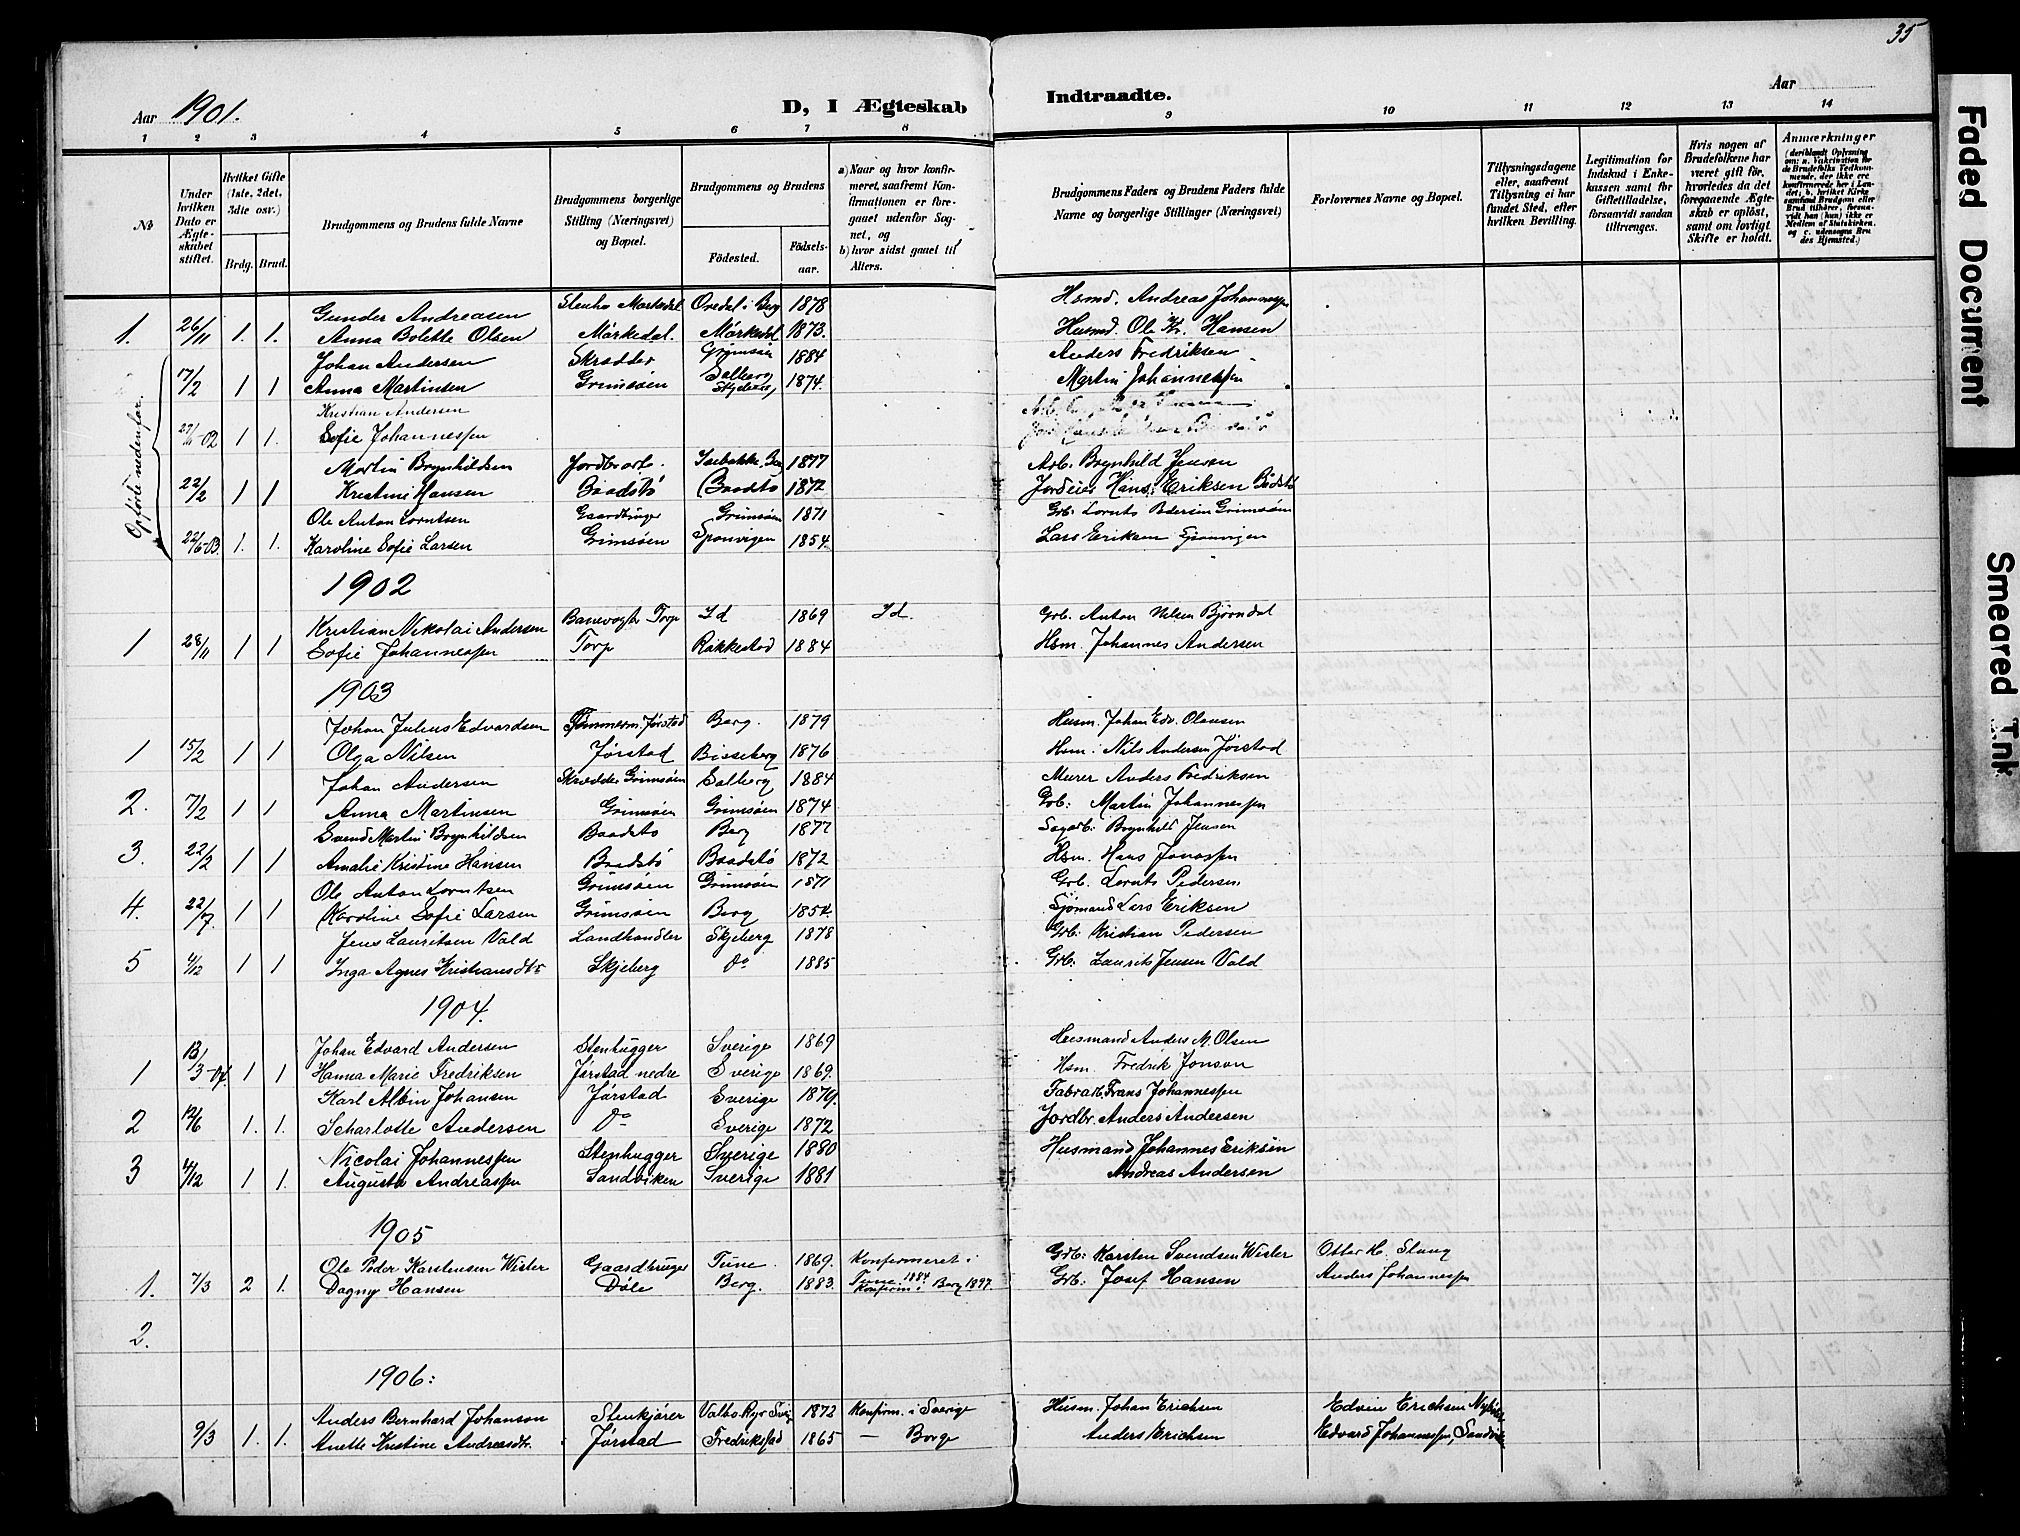 35
Aar 1901. D, I Ægteskab Indtraadte. Aar
1 2 3 4 5 6 7 8 9 10 11 12 13 14
No
Under hvilken Dato er Ægteskabet stiftet.
Hvilket Gifte (1ste, 2det, 3die osv.)
Brdg. Brud.
Brudgommens og Brudens fulde Navne
Brudgommens borgerlige Stilling (Næringsvei) og Bopæl.
Brudgommens og Brudens
Fødested. Fødselsaar.
a) Naar og hvor konfirmeret, saafremt Konfirmationen er foregaaet udenfor Sognet, og
b) hvor sidst gaaet til Alters.
Brudgommens Faders og Brudens Faders fulde Navne og borgerlige Stillinger (Næringsvei)
Forlovernes Navne og Bopæl.
Tillysningsdagene eller, saafremt Tillysning ei har fundet Sted, efter hvilken Bevilling.
Legitimation for Indskud i Enkekassen samt for Giftetilladelse, forsaavidt saadan tiltrænges.
Hvis nogen af Brudefolkene har været gift før, hvorledes da det foregaaende Ægteskab er opløst, samt om lovligt Skifte er holdt.
Anmærkninger (deriblandt Oplysning om: a. Vakcination for de Brudefolks Vedkommende, der ikke ere konfirmerede her i Landet; b. hvilket Kirkesamfund Brudgom eller Brud tilhører, forsaavidt han (hun) ikke er Medlem af Statskirken, og c. udensogns Brudes Hjemsted.)
Gunder Andreasen Stenho Markedal Oredal i Berg 1878 Hsmd. Andreas Johannessen
1. 26/11 1. 1. Anna Bolette Olsen Mårkedal. Mårkedal 1873. Husmd. Ole Kr. Hansen
Opførte nedenfor.
Johan Andersen Skrædder Grimsøen 1884 Anders Fredriksen
7/2 1 1 Anna Martinsen Grimsøen Solberg, Skjeberg, 1874. Martin Johannessen
Kristian Andersen
-02 1 1. Sofie Johannessen
Martin Brynhildsen Jordbrarb. Isebakke, Berg 1877 Arb. Brynhild Jensen
22/2 1 1 Kristine Hansen Baadstø Baadstø 1872 Jordeier Hans Eriksen Bådstø
Ole Anton Lorntsen Gaardbruger Grimsøen 1871 Grb. Lornts Pedersen Grimsøen
22/6-03. 1. 1. Karoline Sofie Larsen Grimsøen Sponvigen 1854. Lars Eriksen Sponvigen
1902
Kristian Nikolai Andersen Banevogter Torp Id 1869 Id. Grb. Anton Nilsen Bjørndal
1 28/11 1 1 Sofie Johannessen Torp Rakkestad 1884 Hsm. Johannes Andersen
1903
Johan Julius Edvardsen Tømmerm. Jørstad Berg. 1879 Husm. Johan Edv. Olausen
1 15/2 1 1 Olga Nilsen Jørstad Bisseberg 1876 Hsm. Nils Andersen Jørstad
Johan Andersen Skrædder Grimsøen Solberg 1884 Murer Anders Fredriksen
2. 7/2 1 1 Anna Martinsen Grimsøen Grimsøen 1874 Grb: Martin Johannessen
Svend Martin Brynhildsen Baadstø Berg 1877 Sagarb: Brynhild Jensen
3. 22/2 1 1 Amalie Kristine Hansen Baadstø Baadstø 1872 Hsm. Hans Jonassen
Ole Anton Lorntsen Grimsøen Grimsøen 1871 Grb. Lornts Pedersen
4. 22/7. 1 1 Karoline Sofie Larsen Grimsøen Berg 1854. Sjømand Lars Eriksen
Jens Lauritsen Vald Landhandler Skjeberg 1878 Grb: Kristian Pedersen
5 4/12 1 1 Inga Agnes Kristiansdtr Skjeberg Do 1885 Grb: Laurits Jensen Vald
1904.
Johan Edvard Andersen Stenhugger Sverige 1869 Husmand Anders M. Olsen
1 13/3-04. 1 1 Hanna Marie Fredriksen Jørstad nedre Sverige 1869. Hsm. Fredrik Jonson
Karl Albin Johansen Jørstad Sverige 1879. Fabrarb. Frans Johannessen
2 12/6 1. 1. Scharlotte Andersen Do Sverige 1872 Jordbr. Anders Andersen
Nicolai Johannessen Stenhugger Sverige 1880 Husmand Johannes Eriksen
3 4/12 1 1. Augusta Andreassen Sandviken Sverige 1881 Andreas Andersen
1905
Ole Peder Karstensen Wister Gaardbruger Tune. 1869. Konfirmeret i Tune 1884 Grb: Karsten Svendsen Wister Otter H. Slang
1. 7/3 2 1. Dagny Hansen Døle Berg. 1883. Konfirm. i Berg 1897. Grb: Josef Hansen Anders Johannessen
2.
1906:
Anders Bernhard Johanson Stenkjører Valbo Ryr Sverig 1872 Konfirm. i Sverige Husm. Johan Erichsen Edvin Erichsen
9/3 1. 1. Anette Kristine Andreasdtr. Jørstad Fredrikstad 1865 — Borge Anders Erichsen Edvard Johannessen, Sandvik
Faded Document
Smeared Ink